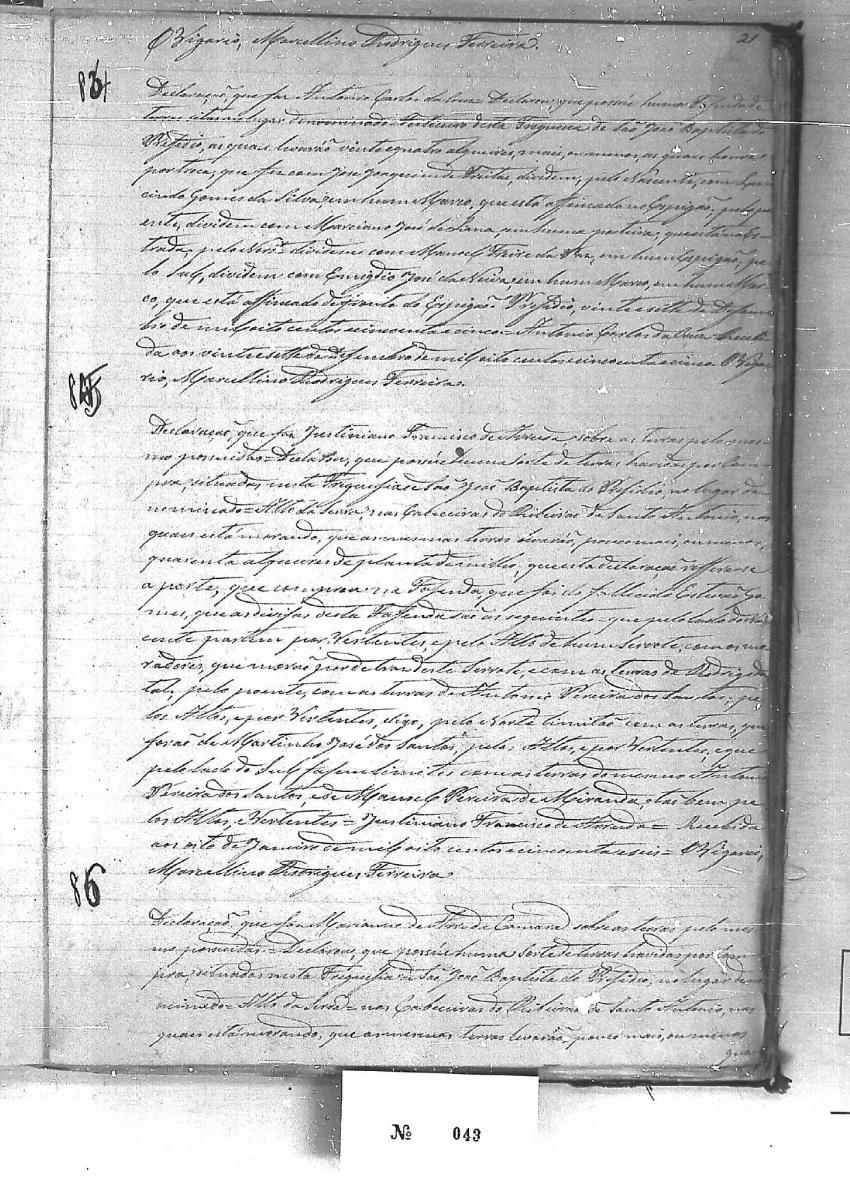 O Vigario, Marcellino Rodrigues Ferreira.
21
84
Declaração, que faz Antonio Carlos da Cruz = Declarou, que possúe huma Fazenda de
terras sita no lugar denominado desta Freguezia de São João Baptista do
Presidio, as quaes levarão vinte e quatro alqueires, mais, ou menos, as quaes houve
por troca, que fez com José Joaquim de Freitas, dividem, pelo Nascente, com
Gomes da Silva em hum Marco, que está affincado no Espigão; pelo po-
ente, dividem com Marciano José de Lana, em huma porteira, que está na Es-
trada; pelo Norte dividem com Manoel da em hum Espigão; pe-
lo Sul, dividem com Emigdio José da Neiva em hum Marco, em hum Mar-
co, que está affincado do Espigão. Presidio, vinte e sette de Desem-
bro de mil oito centos e cincoenta e cinco = Antonio Carlos da Cruz. Recebi-
da aos vinte e sette de Desembro de mil oito centos cincoenta e cinco. O Viga-
rio, Marcellino Rodrigues Ferreira.
85
Declaração, que faz Justiniano Francisco de Arruda sobre as terras pelo mes-
mo possuidas = Declarou, que possúe huma Sorte de terras havidas por Com-
pra, situadas nesta Freguesia de São João Baptista do Presidio, no lugar de-
nominado = Alto da Serra, nas Cabeceiras do Ribeirão de Santo Antonio, nas
quaes está morando, que as mesmas terras levarão, pouco mais, ou menos,
quarenta alqueires de planta de milho, que esta declaração refere-se
a parte, que comprou na Fazenda, que foi do fallecido Estevão Go-
mes, que as divisas desta Fazenda são as seguintes = que pelo lado do Nas-
cente partem por Vertentes, e pelo Alto de hum Serrote, com os mo-
radores, que morão por detraz deste Serrote, e com as terras de Rodrigo de
tal; pelo poente, com as terras de Antonio Pereira dos Santos, pe-
los Altos, e por Vertentes, digo, pelo Norte limitão com as terras, que
forão de Martinho José dos Santos, pelos Altos, e por Vertentes, e que
pelo lado do Sul fasem limites com as terras do mesmo Antonio
Pereira dos Santos, e de Manoel Pereira de Miranda, tão bem pe-
los Altos, e Vertentes = Justiniano Francisco de Arruda = Recebida
aos oito de Janeiro de mil oito centos e cincoenta e seis = O Vigario,
Marcellino Rodrigues Ferreira
86
Declaração, que faz Marianno de Camara sobre as terras pelo mes-
mo possuidas = Declarou, que possúe huma Sorte de terras havidas por Com-
pra situadas nesta Freguesia de São João Baptista do Presidio, no lugar deno-
minado = Alto da Serra = nas Cabeceiras do Ribeirão de Santo Antonio, nas
quaes está morando, que as mesmas terras levarão, pouco mais, ou menos
qua-
Nº 043